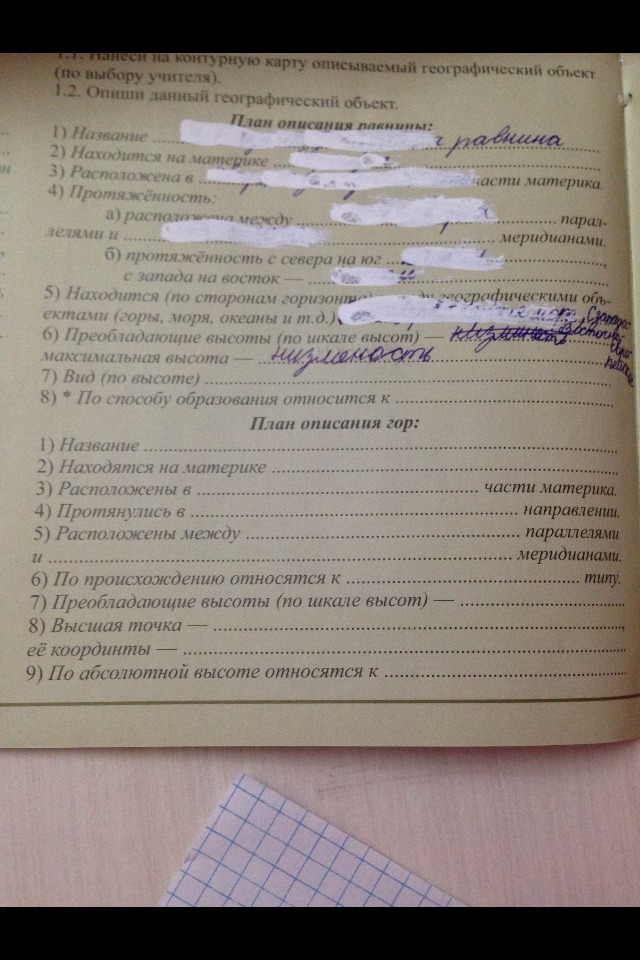 1.1. Нанеси на контурную карту описываемый географический объект
(по выбору учителя).
1.2. Опиши данный географический объект.
План описания равнины:
1) Название ........ равнина
2) Находится на материке ........
3) Расположена в ........ части материка.
4) Протяжённость:
а) расположена между ........ парал-
лелями и ........ меридианами.
б) протяжённость с севера на юг ........,
с запада на восток — ........
5) Находится (по сторонам горизонта) географическими объ-
ектами (горы, моря, океаны и т.д.)
6) Преобладающие высоты (по шкале высот) —
максимальная высота — низменость
7) Вид (по высоте) ........
8) * По способу образования относится к ........
План описания гор:
1) Название ........
2) Находятся на материке ........
3) Расположены в ........ части материка.
4) Протянулись в ........ направлении.
5) Расположены между ........ параллелями
и ........ меридианами.
6) По происхождению относятся к ........ типу.
7) Преобладающие высоты (по шкале высот) — ........
8) Высшая точка — ........,
её координты — ........
9) По абсолютной высоте относятся к ........